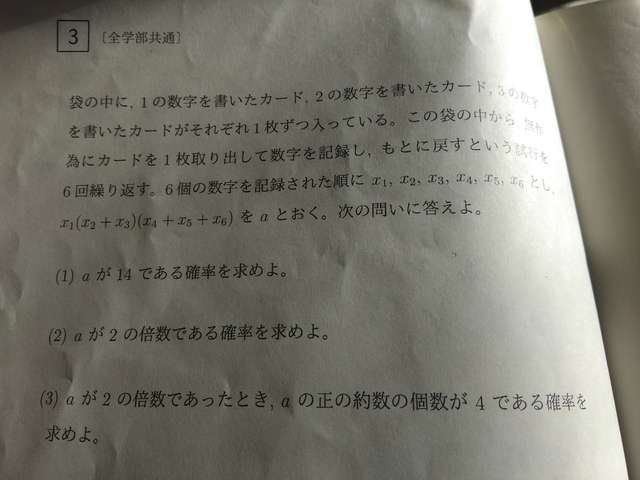 3 [全学部共通]
袋の中に, 1の数字を書いたカード, 2の数字を書いたカード, 3の数字
を書いたカードがそれぞれ1枚ずつ入っている。この袋の中から, 無作
為にカードを1枚取り出して数字を記録し, もとに戻すという試行を
6回繰り返す。6個の数字を記録された順に x₁, x₂, x₃, x₄, x₅, x₆ とし,
x₁(x₂+x₃)(x₄+x₅+x₆) を a とおく。次の問いに答えよ。
(1) a が 14 である確率を求めよ。
(2) a が 2 の倍数である確率を求めよ。
(3) a が 2 の倍数であったとき, a の正の約数の個数が 4 である確率を
求めよ。